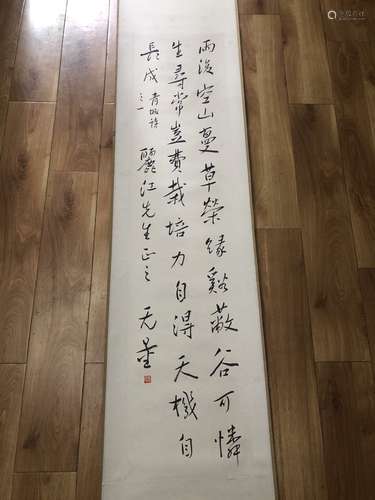 雨後空山蔓草榮緣谿蔽谷可憐
生尋常豈費栽培力自得天機自
長成 青城詩之一 酈江先生正之 无量